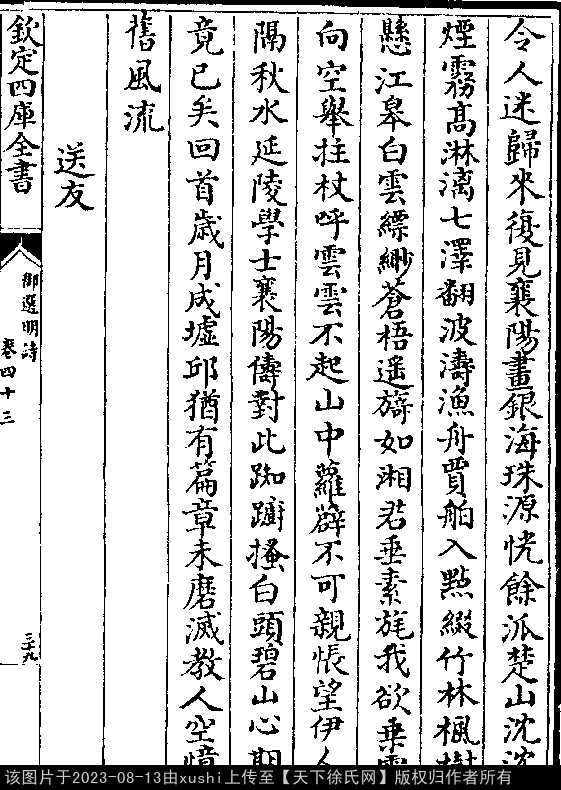 令人迷歸來復見襄陽畫銀海珠源恍餘派楚山沈沈
煙霧高淋漓七澤翻波濤漁舟賈舶入㸃綴竹林楓樹
懸江皋白雲縹緲蒼梧遥旖如湘君垂素旄我欲乗雲
向空舉拄杖呼雲雲不起山中蘿薜不可親悵望伊人
隔秋水延陵學士襄陽儔對此踟躕搔白頭碧山心期
竟已矣回首歳月成墟邱猶有篇章未磨滅教人空憶
舊風流
送友
欽定四庫全書
御選明詩
卷四十三
三九
该图片于2023-08-13由xushi上传至【天下徐氏网】版权归作者所有